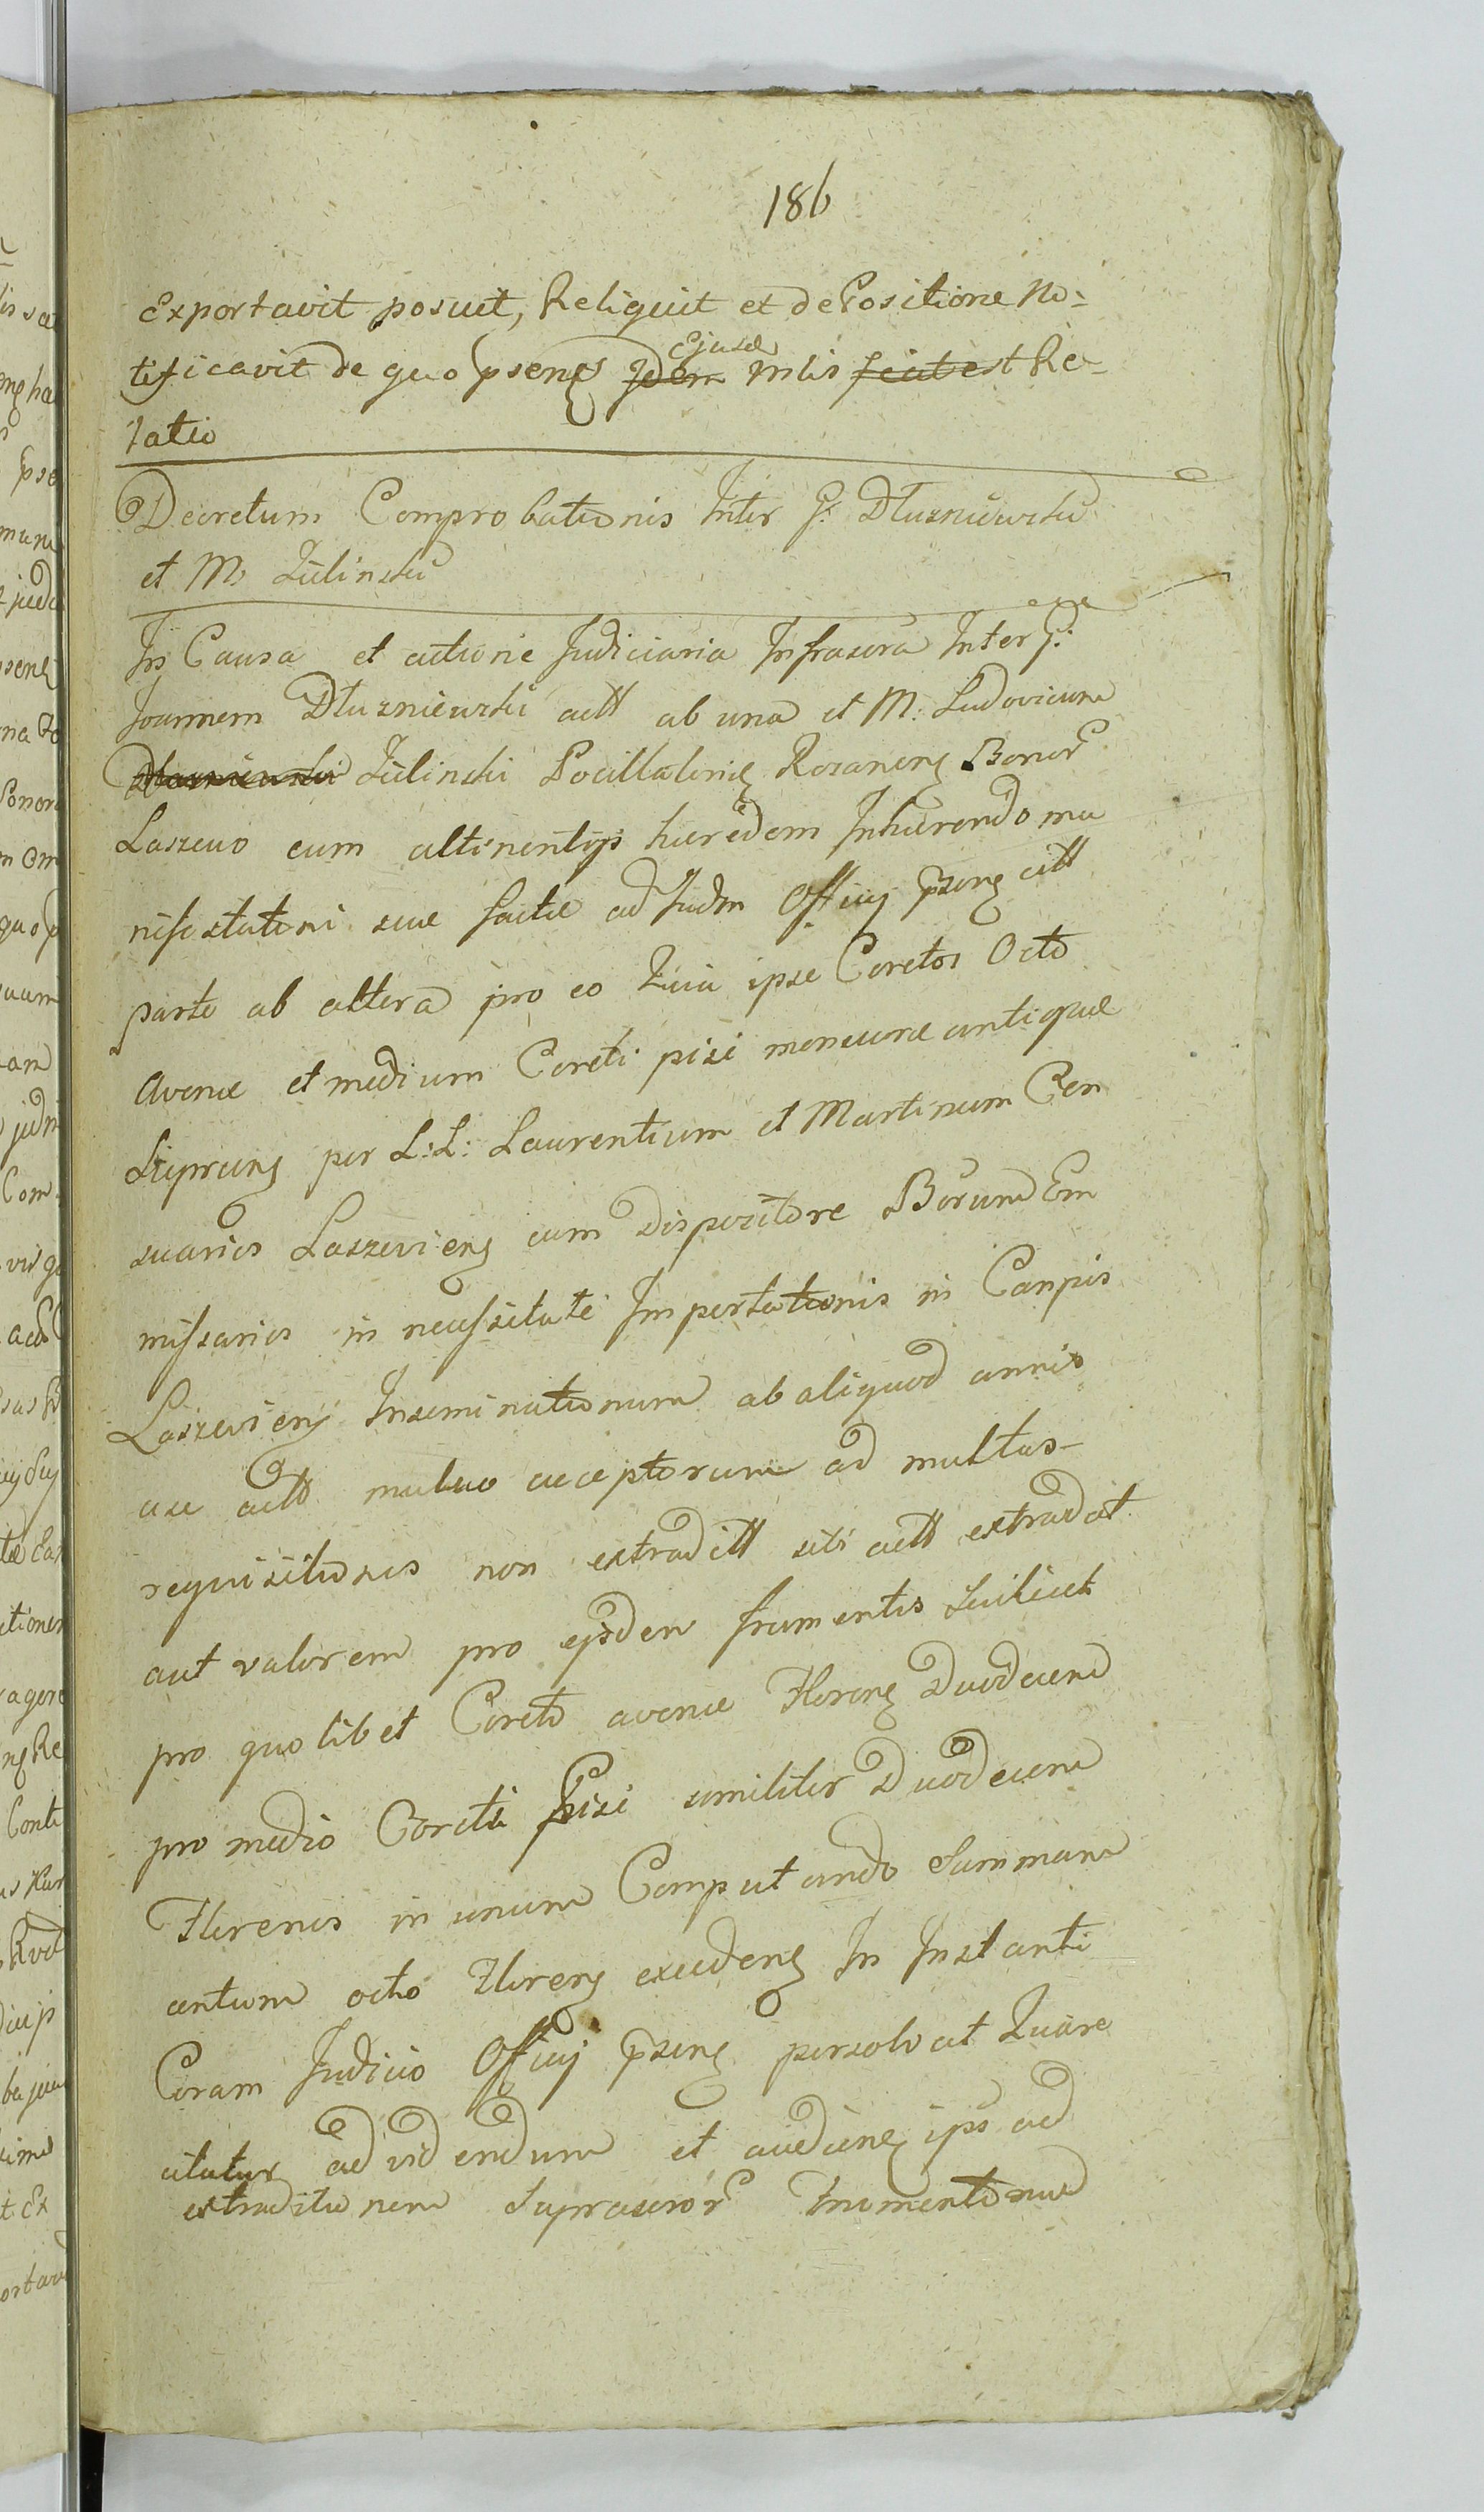 186
Exportavit posuit, Reliquit et de Positione No:
tificavit de quo psens Jdem Ejusd mlis facit est Re-
latio
Decretum Comprobationis Inter G: Dłuzniewski
et M. Zülinski
In Causa et actione Judiciaria Infrascra Inter G:
Joannem Dłuzniewski actt ab una et M: Ludovicum
Dłuzniewski Zülinski Pocillatorie Rozanens Bonor
Laszewo cum attinentijs haeredem Inhaerendo ma
nifestationi suae factae ad Judm Officij psens citt
parte ab altera pro eo Quia ipse Coretos Octo
Avenae et medium Coreti pisi mensurae antiquae
Stępcens per L:L: Laurentium et Martinum Cen
suarios Laszeviens cum dispozitore Eorundem
missarios in necessitate Importationis in Campis
Laszeviens Inseminationum ab aliquod annis
ase actt mutuo acceptorum ad multas-
requisitiones non extraditt sibi actt extradat
aut valorem pro ejsdem frumentis Scilicet
pro quolibet Coreto avenae Florens Duodecem
pro medio Coreti Pisi similiter Duodecem
Florenos in unum Computando Summam
centum octo Florens excedens In Instanti
Coram Judicio Officij psens persolvat Quare
citatur ad videndum et audiens ips ad
extraditionem Suprascror frumentorum